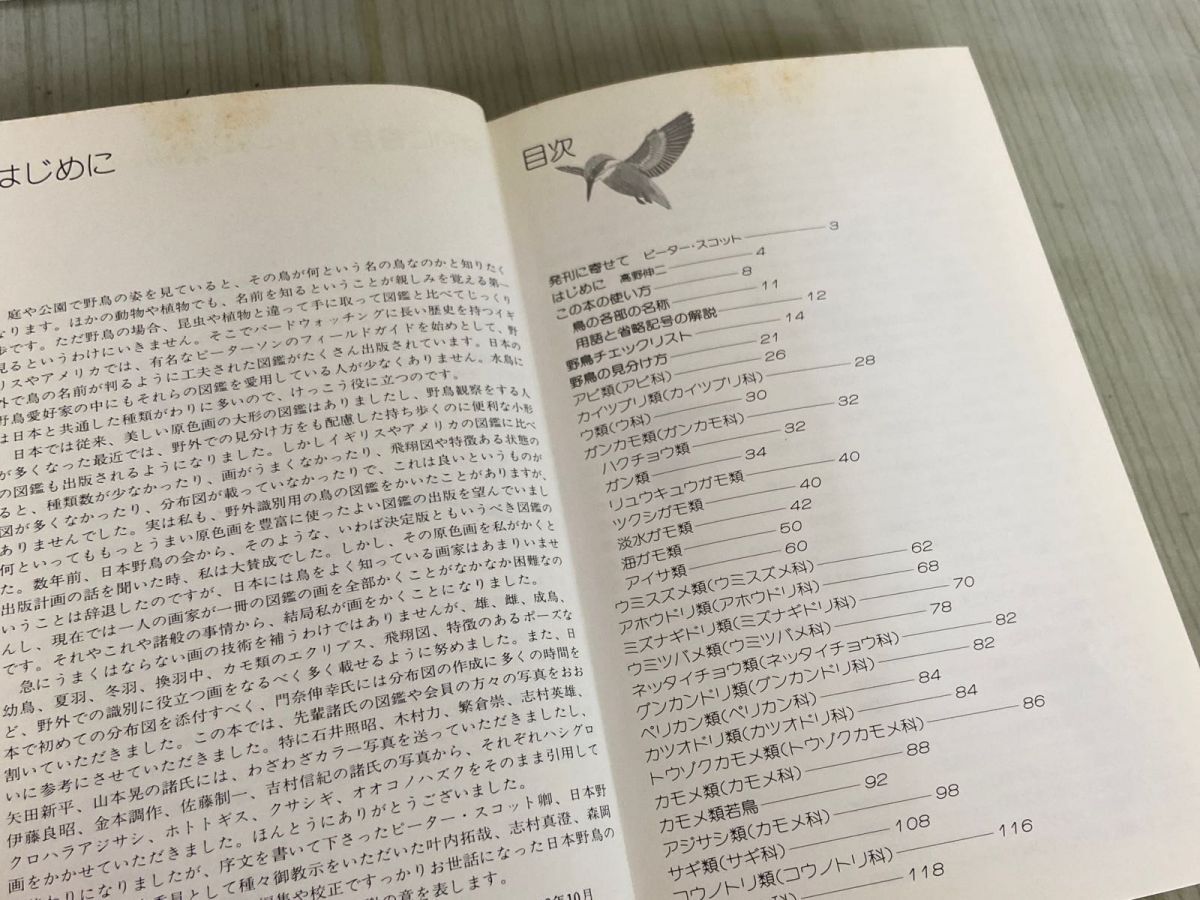 はじめに
庭や公園で野鳥の姿を見ていると、その鳥が何という名の鳥なのかと知りたく
なります。ほかの動物や植物でも、名前を知るということが親しみを覚える第一
歩です。ただ野鳥の場合、昆虫や植物と違って手に取って図鑑と比べてじっくり
見るというわけにいきません。そこでバードウォッチングに長い歴史を持つイギ
リスやアメリカでは、有名なピーターソンのフィールドガイドを始めとして、野
外で鳥の名前が判るように工夫された図鑑がたくさん出版されています。日本の
野鳥愛好家の中にもそれらの図鑑を愛用している人が少なくありません。水鳥に
は日本と共通した種類がわりに多いので、けっこう役に立つのです。
日本では従来、美しい原色画の大形の図鑑はありましたし、野鳥観察をする人
が多くなった最近では、野外での見分け方をも配慮した持ち歩くのに便利な小形
の図鑑も出版されるようになりました。しかしイギリスやアメリカの図鑑に比べ
ると、種類数が少なかったり、画がうまくなかったり、飛翔図や特徴ある状態の
図が多くなかったり、分布図が載っていなかったりで、これは良いというものが
ありませんでした。実は私も、野外識別用の鳥の図鑑をかいたことがありますが、
何といってももっとうまい原色画を豊富に使ったよい図鑑の出版を望んでいまし
た。数年前、日本野鳥の会から、そのような、いわば決定版ともいうべき図鑑の
出版計画の話を聞いた時、私は大賛成でした。しかし、その原色画を私がかくと
いうことは辞退したのですが、日本には鳥をよく知っている画家はあまりいませ
んし、現在では一人の画家が一冊の図鑑の画を全部かくことがなかなか困難なの
です。それやこれや諸般の事情から、結局私が画をかくことになりました。
急にうまくはならない画の技術を補うわけではありませんが、雄、雌、成鳥、
幼鳥、夏羽、冬羽、換羽中、カモ類のエクリプス、飛翔図、特徴のあるポーズな
ど、野外での識別に役立つ画をなるべく多く載せるように努めました。また、日
本で初めての分布図を添付すべく、門奈伸幸氏には分布図の作成に多くの時間を
割いていただきました。この本では、先輩諸氏の図鑑や会員の方々の写真をおお
いに参考にさせていただきました。特に石井照昭、木村力、繁倉崇、志村英雄、
矢田新平、山本晃の諸氏には、わざわざカラー写真を送っていただきましたし、
伊藤良昭、金本調作、佐藤制一、吉村信紀の諸氏の写真から、それぞれハシグロ
クロハラアジサシ、ホトトギス、クサシギ、オオコノハズクをそのまま引用して
画をかかせていただきました。ほんとうにありがとうございました。
わりになりましたが、序文を書いて下さったピーター・スコット卿、日本野
として種々御教示をいただいた叶内拓哉、志村真澄、森岡
編集や校正ですっかりお世話になった日本野鳥の
の意を表します。
年10月
目次
発刊に寄せて ピーター・スコット 3
はじめに 高野伸二 4
この本の使い方 8
鳥の各部の名称 11
用語と省略記号の解説 12
野鳥チェックリスト 14
野鳥の見分け方 21
アビ類(アビ科) 26
カイツブリ類(カイツブリ科) 28
ウ類(ウ科) 30
ガンカモ類(ガンカモ科) 32
ハクチョウ類 32
ガン類 34
リュウキュウガモ類 40
ツクシガモ類 40
淡水ガモ類 42
海ガモ類 50
アイサ類 60
ウミスズメ類(ウミスズメ科) 62
アホウドリ類(アホウドリ科) 68
ミズナギドリ類(ミズナギドリ科) 70
ウミツバメ類(ウミツバメ科) 78
ネッタイチョウ類(ネッタイチョウ科) 82
グンカンドリ類(グンカンドリ科) 82
ペリカン類(ペリカン科) 84
カツオドリ類(カツオドリ科) 84
トウゾクカモメ類(トウゾクカモメ科) 86
カモメ類(カモメ科) 88
カモメ類若鳥 92
アジサシ類(カモメ科) 98
サギ類(サギ科) 108
コウノトリ類(コウノトリ科) 116
118